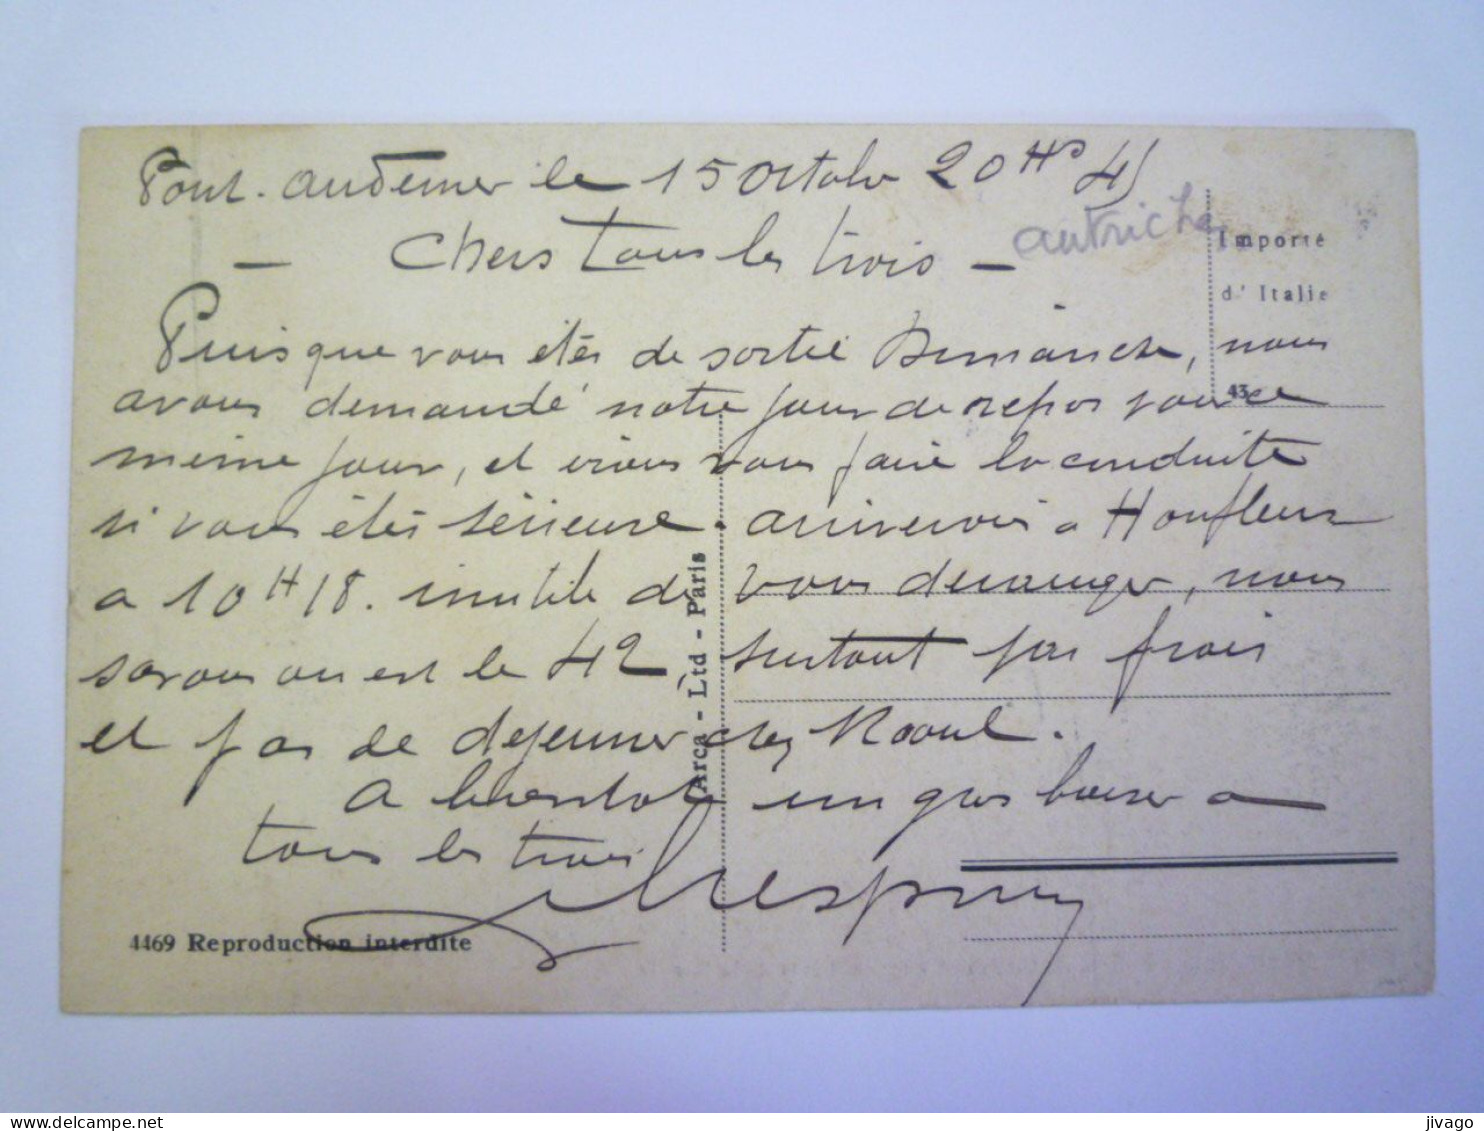 Pont-Audemer le 15 Octobre 20 Hs 45
autriche
— Chers Tous les trois —
Importé
d'Italie
Puisque vous êtes de sortie Dimanche, nous
avons demandé notre jour de repos pour ce
43
même jour, et irions vous faire la conduite
si vous êtes sérieuse. arriverons a Honfleur
a 10 H 18. inutile de vous deranger, nous
savons ou est le 42, surtout pas frais
et pas de dejeuner chez Raoul.
A bientot un gros baiser a
tous les trois
Arca - Ltd - Paris
4469 Reproduction interdite